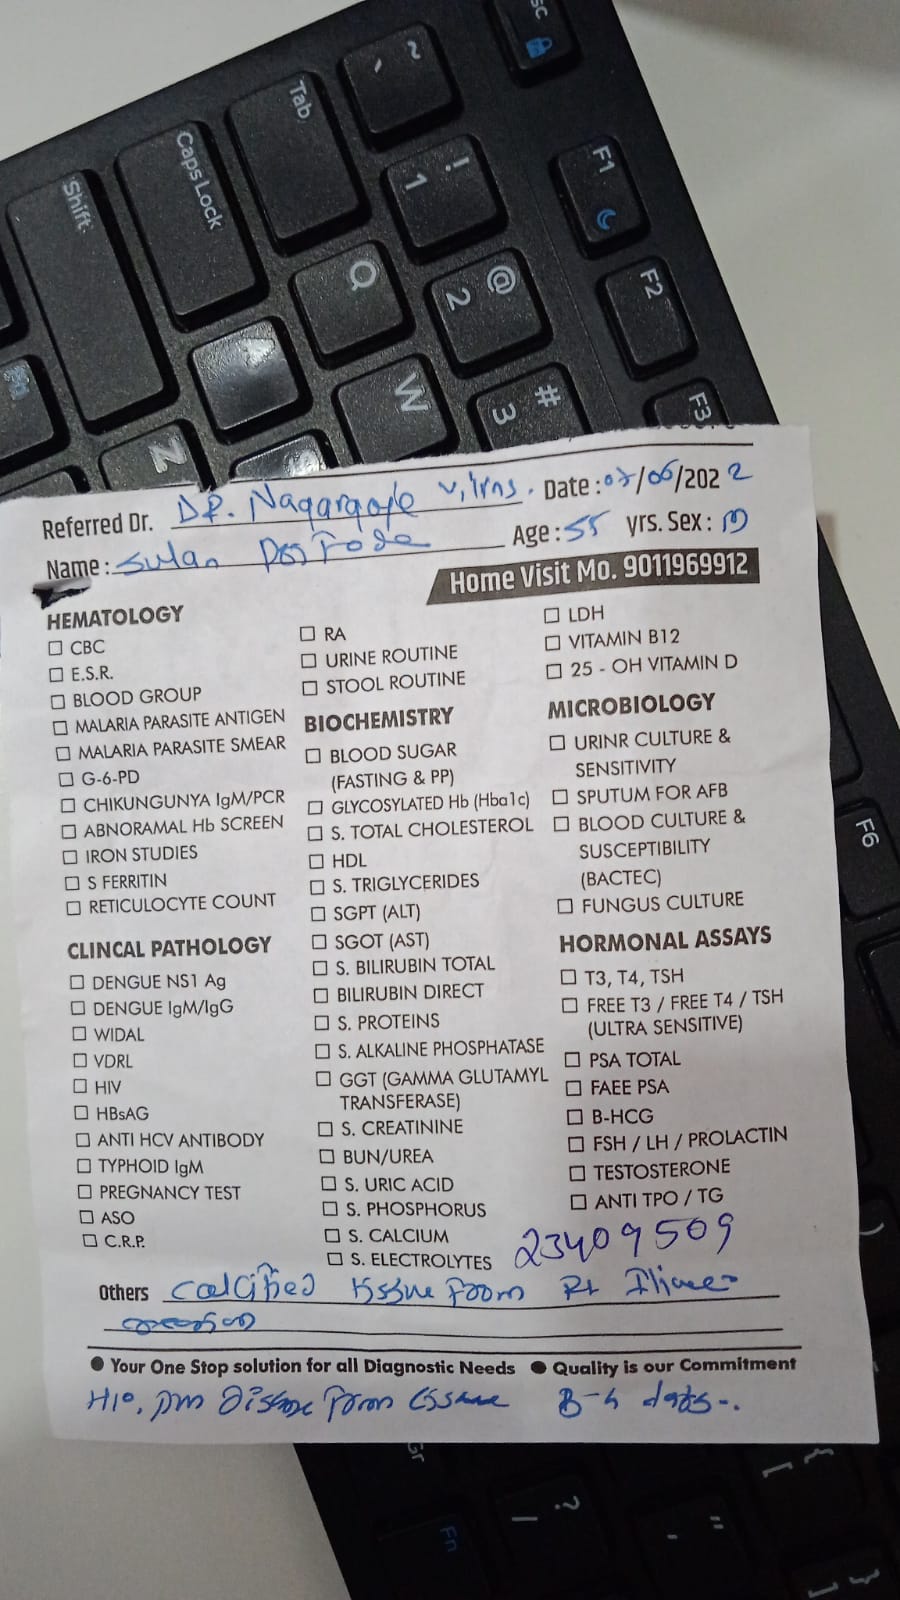 Esc
~
`
Tab
!
1
F1
Caps Lock
Q
@
2
F2
Shift
W
#
3
F3
Z
Referred Dr. DR. Nagargoje Date : 07/06/2022
Name : Age : 55 yrs. Sex : M
Home Visit Mo. 9011969912
HEMATOLOGY
☐ CBC
☐ E.S.R.
☐ BLOOD GROUP
☐ MALARIA PARASITE ANTIGEN
☐ MALARIA PARASITE SMEAR
☐ G-6-PD
☐ CHIKUNGUNYA IgM/PCR
☐ ABNORAMAL Hb SCREEN
☐ IRON STUDIES
☐ S FERRITIN
☐ RETICULOCYTE COUNT
CLINCAL PATHOLOGY
☐ DENGUE NS1 Ag
☐ DENGUE IgM/IgG
☐ WIDAL
☐ VDRL
☐ HIV
☐ HBsAG
☐ ANTI HCV ANTIBODY
☐ TYPHOID IgM
☐ PREGNANCY TEST
☐ ASO
☐ C.R.P.
☐ RA
☐ URINE ROUTINE
☐ STOOL ROUTINE
BIOCHEMISTRY
☐ BLOOD SUGAR
(FASTING & PP)
☐ GLYCOSYLATED Hb (Hba1c)
☐ S. TOTAL CHOLESTEROL
☐ HDL
☐ S. TRIGLYCERIDES
☐ SGPT (ALT)
☐ SGOT (AST)
☐ S. BILIRUBIN TOTAL
☐ BILIRUBIN DIRECT
☐ S. PROTEINS
☐ S. ALKALINE PHOSPHATASE
☐ GGT (GAMMA GLUTAMYL
TRANSFERASE)
☐ S. CREATININE
☐ BUN/UREA
☐ S. URIC ACID
☐ S. PHOSPHORUS
☐ S. CALCIUM
☐ S. ELECTROLYTES
☐ LDH
☐ VITAMIN B12
☐ 25 - OH VITAMIN D
MICROBIOLOGY
☐ URINR CULTURE &
SENSITIVITY
☐ SPUTUM FOR AFB
☐ BLOOD CULTURE &
SUSCEPTIBILITY
(BACTEC)
☐ FUNGUS CULTURE
HORMONAL ASSAYS
☐ T3, T4, TSH
☐ FREE T3 / FREE T4 / TSH
(ULTRA SENSITIVE)
☐ PSA TOTAL
☐ FAEE PSA
☐ B-HCG
☐ FSH / LH / PROLACTIN
☐ TESTOSTERONE
☐ ANTI TPO / TG
23409509
Others calcified tissue from Rt
● Your One Stop solution for all Diagnostic Needs ● Quality is our Commitment
F6
Fn
?
/